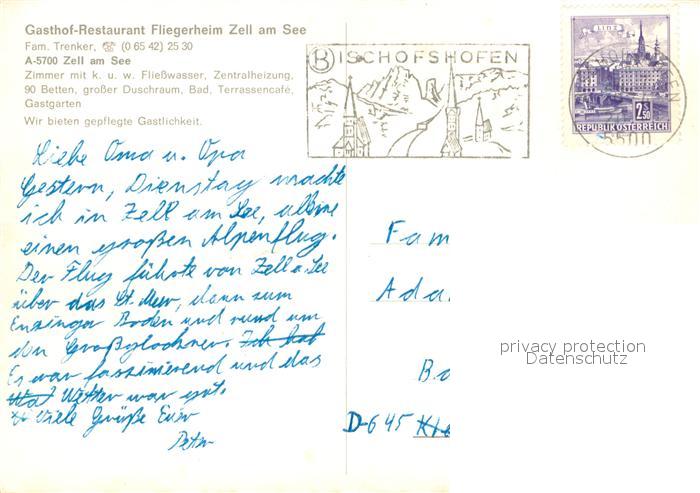 Gasthof-Restaurant Fliegerheim Zell am See
Fam. Trenker, ☎ (0 65 42) 25 30
A-5700 Zell am See
Zimmer mit k. u. w. Fließwasser, Zentralheizung,
90 Betten, großer Duschraum, Bad, Terrassencafé,
Gastgarten
Wir bieten gepflegte Gastlichkeit.
BISCHOFSHOFEN
LINZ
2S50
REPUBLIK ÖSTERREICH
5500
Liebe Oma u. Opa
Gestern, Dienstag machte
ich in Zell am See, alleine
einen großen Alpenflug.
Der Flug führte von Zell a. See
über das St. Meer, dann zum
Enzinger Boden und rund um
den Großglockner. Ich hab
Es war faszinierend und das
Wetter war gut.
Viele Grüße Euer
Peter
Fam
Ada.
Bo
D-645 Kle
privacy protection
Datenschutz